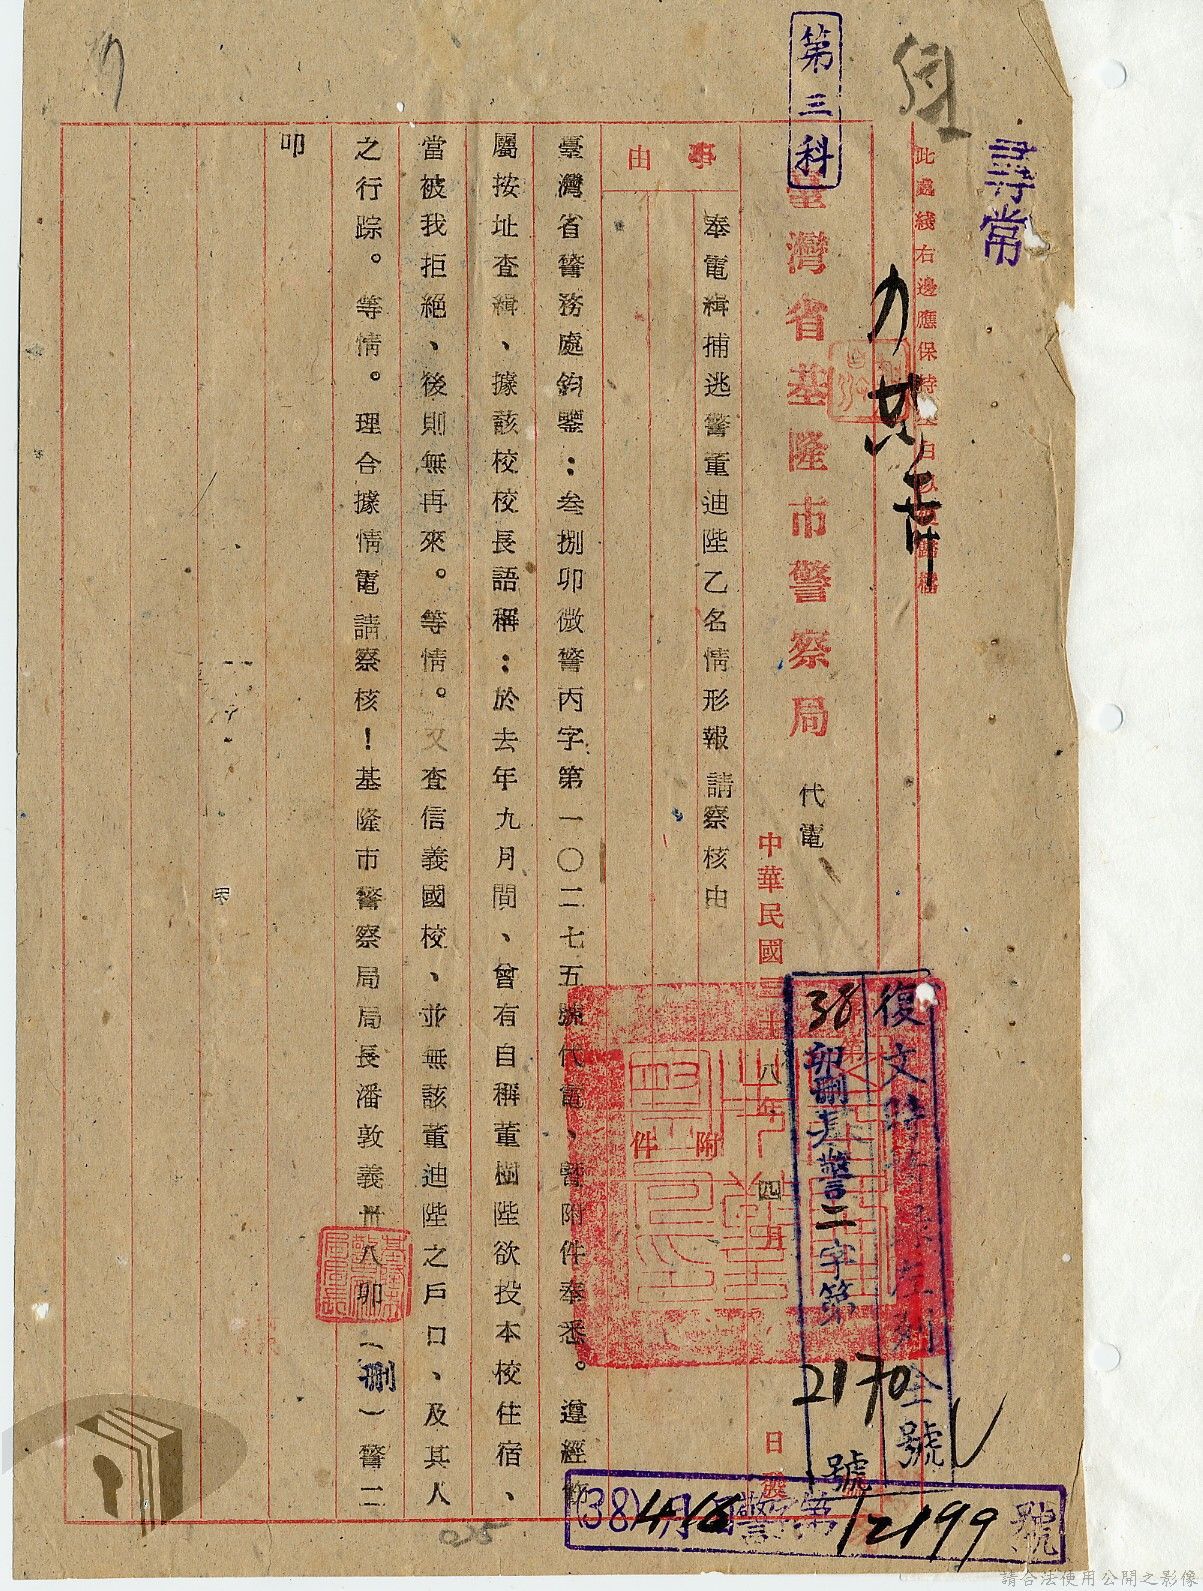 尋常
此處綫右邊應保持空白以便歸檔
第三科
臺灣省基隆市警察局 代電
中華民國三十八年四月 日發
復文時請
38卯刪基警二字第2170號
附件
事由
奉電緝捕逃警董迪陛乙名情形報請察核由
臺灣省警務處鈞鑒：叁捌卯微警丙字第一〇二七五號代電、暨附件奉悉。遵經飭
屬按址查緝、據該校校長語稱：於去年九月間、曾有自稱董樹陛欲投本校住宿、
當被我拒絕、後則無再來。等情。又查信義國校、並無該董迪陛之戶口、及其人
之行踪。等情。理合據情電請察核！基隆市警察局局長潘敦義卅八卯（刪）警二
叩
(38)4月16日警 第12199號
025
請合法使用公開之影像